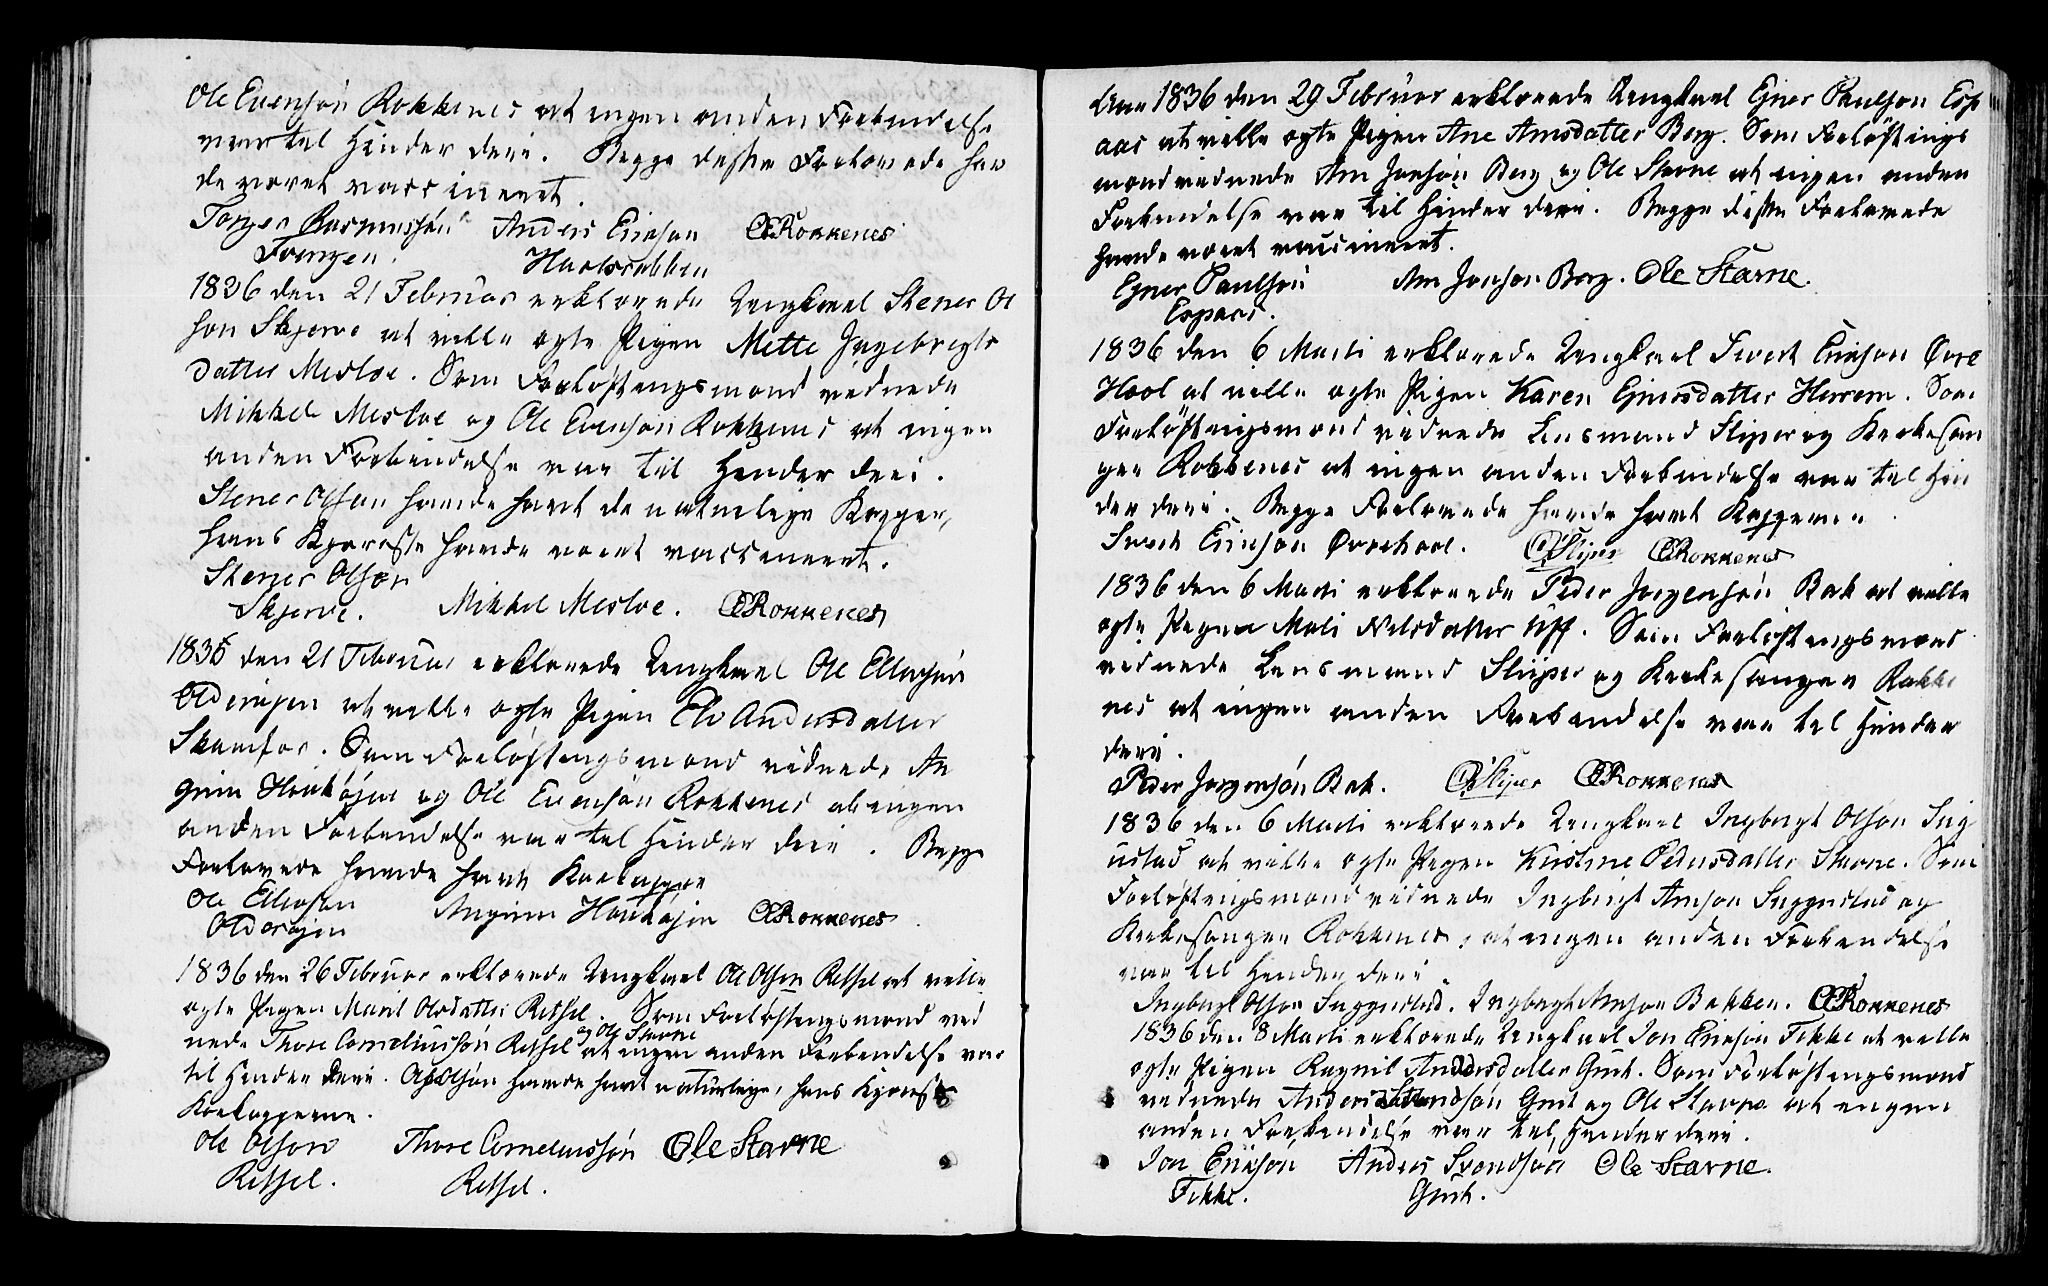 Ole Evensön Rokkenes at ingen anden Forbindelse
var til Hinder deri. Begge disse Forlovede har
de været vaccineret.
Torger Rasmussön Anders Erikson OERokkenes
Foengen. Haolsrabben
1836 den 21 Februar erklærede Ungkarl Stener Ol
son Skjerve at ville ægte Pigen Mette Ingebrigts
datter Mesloe. Som Forlöftningsmænd vidnede
Mikkel Mesloe og Ole Evensön Rokkenes at ingen
anden Forbindelse var til Hinder deri.
Stener Olson havde havt de naturlige Kopper,
hans Kjæreste havde været vaccineret.
Stener Olson
Skjerve. Mikkel Mesloe. OERokkenes
1836 den 21 Februar erklærede Ungkarl Ole Ellevsön
Olderøjen at ville ægte Pigen Eli Andersdatter
Skamfar. Som Forlöftningsmænd vidnede An
grim Houkøjen og Ole Evensön Rokkenes at ingen
anden Forbindelse var til Hinder deri. Begge
Forlovede havde havt Kokopper
Ole Ellevson Angrim Houkøjen OERokkenes
Olderøjen
1836 den 26 Februar erklærede Ungkarl Ole Olson Rethel at ville
ægte Pigen Marit Olsdatter Rethel. Som Forlöftningsmænd vid
nede Thore Corneliussön Rethel og Ole Stavne at ingen anden Forbindelse var
til Hinder deri. O. Olsön havde havt naturlige, hans Kjæreste
Kokopperne.
Ole Olson Thore Corneliussön Ole Stavne
Rethel. Rethel.
Aar 1836 den 29 Februar erklærede Ungkarl Ejner Paulson Esp
aas at ville ægte Pigen Ane Arnsdatter Berg. Som Forlöftnings
mænd vidnede Arn Jonsön Berg og Ole Stavne at ingen anden
Forbindelse var til Hinder deri. Begge disse Forlovede
havde været vaccineret.
Ejner Paulsön Arn Jonson Berg. Ole Stavne.
Espaas.
1836 den 6 Marti erklærede Ungkarl Sivert Erikson Øvre
Hool at ville ægte Pigen Karen Ejnersdatter Herrem. Som
Forlöftningsmænd vidnede Lensmand Slipper og Kirkesan
ger Rokkenes at ingen anden Forbindelse var til Hin
der deri. Begge Forlovede havde havt Kopperne.
Sivert Erikson Øvrehool. Slipper OERokkenes
1836 den 6 Marti erklærede Peder Jørgensön Bak at ville
ægte Pigen Mali Nilsdatter Uff. Som Forlöftningsmænd
vidnede Lensmand Slipper og Kirkesanger Rokke
nes at ingen anden Forbindelse var til Hinder
deri.
Peder Jörgensön Bak. Slipper OERokkenes
1836 den 6 Marti erklærede Ungkarl Ingbrigt Olsön Sug
ustad at ville ægte Pigen Kristine Pedersdatter Stavne. Som
Forlöftningsmænd vidnede Ingbrigt Arnson Suggustad og
Kirkesanger Rokkenes, at ingen anden Forbindelse
var til Hinder deri.
Ingbrigt Olson Suggustad. Ingbrigt Arnson Bakken. OERokkenes
1836 den 8 Marti erklærede Ungkarl Jon Erikson Fikke at ville
ægte Pigen Ragnil Andersdatter Grut. Som Forlöftningsmænd
vidnede Anders Svendsön Grut og Ole Stavne at ingen
anden Forbindelse var til Hinder deri.
Jon Eriksön Anders Svendsön Ole Stavne.
Fikke. Grut.